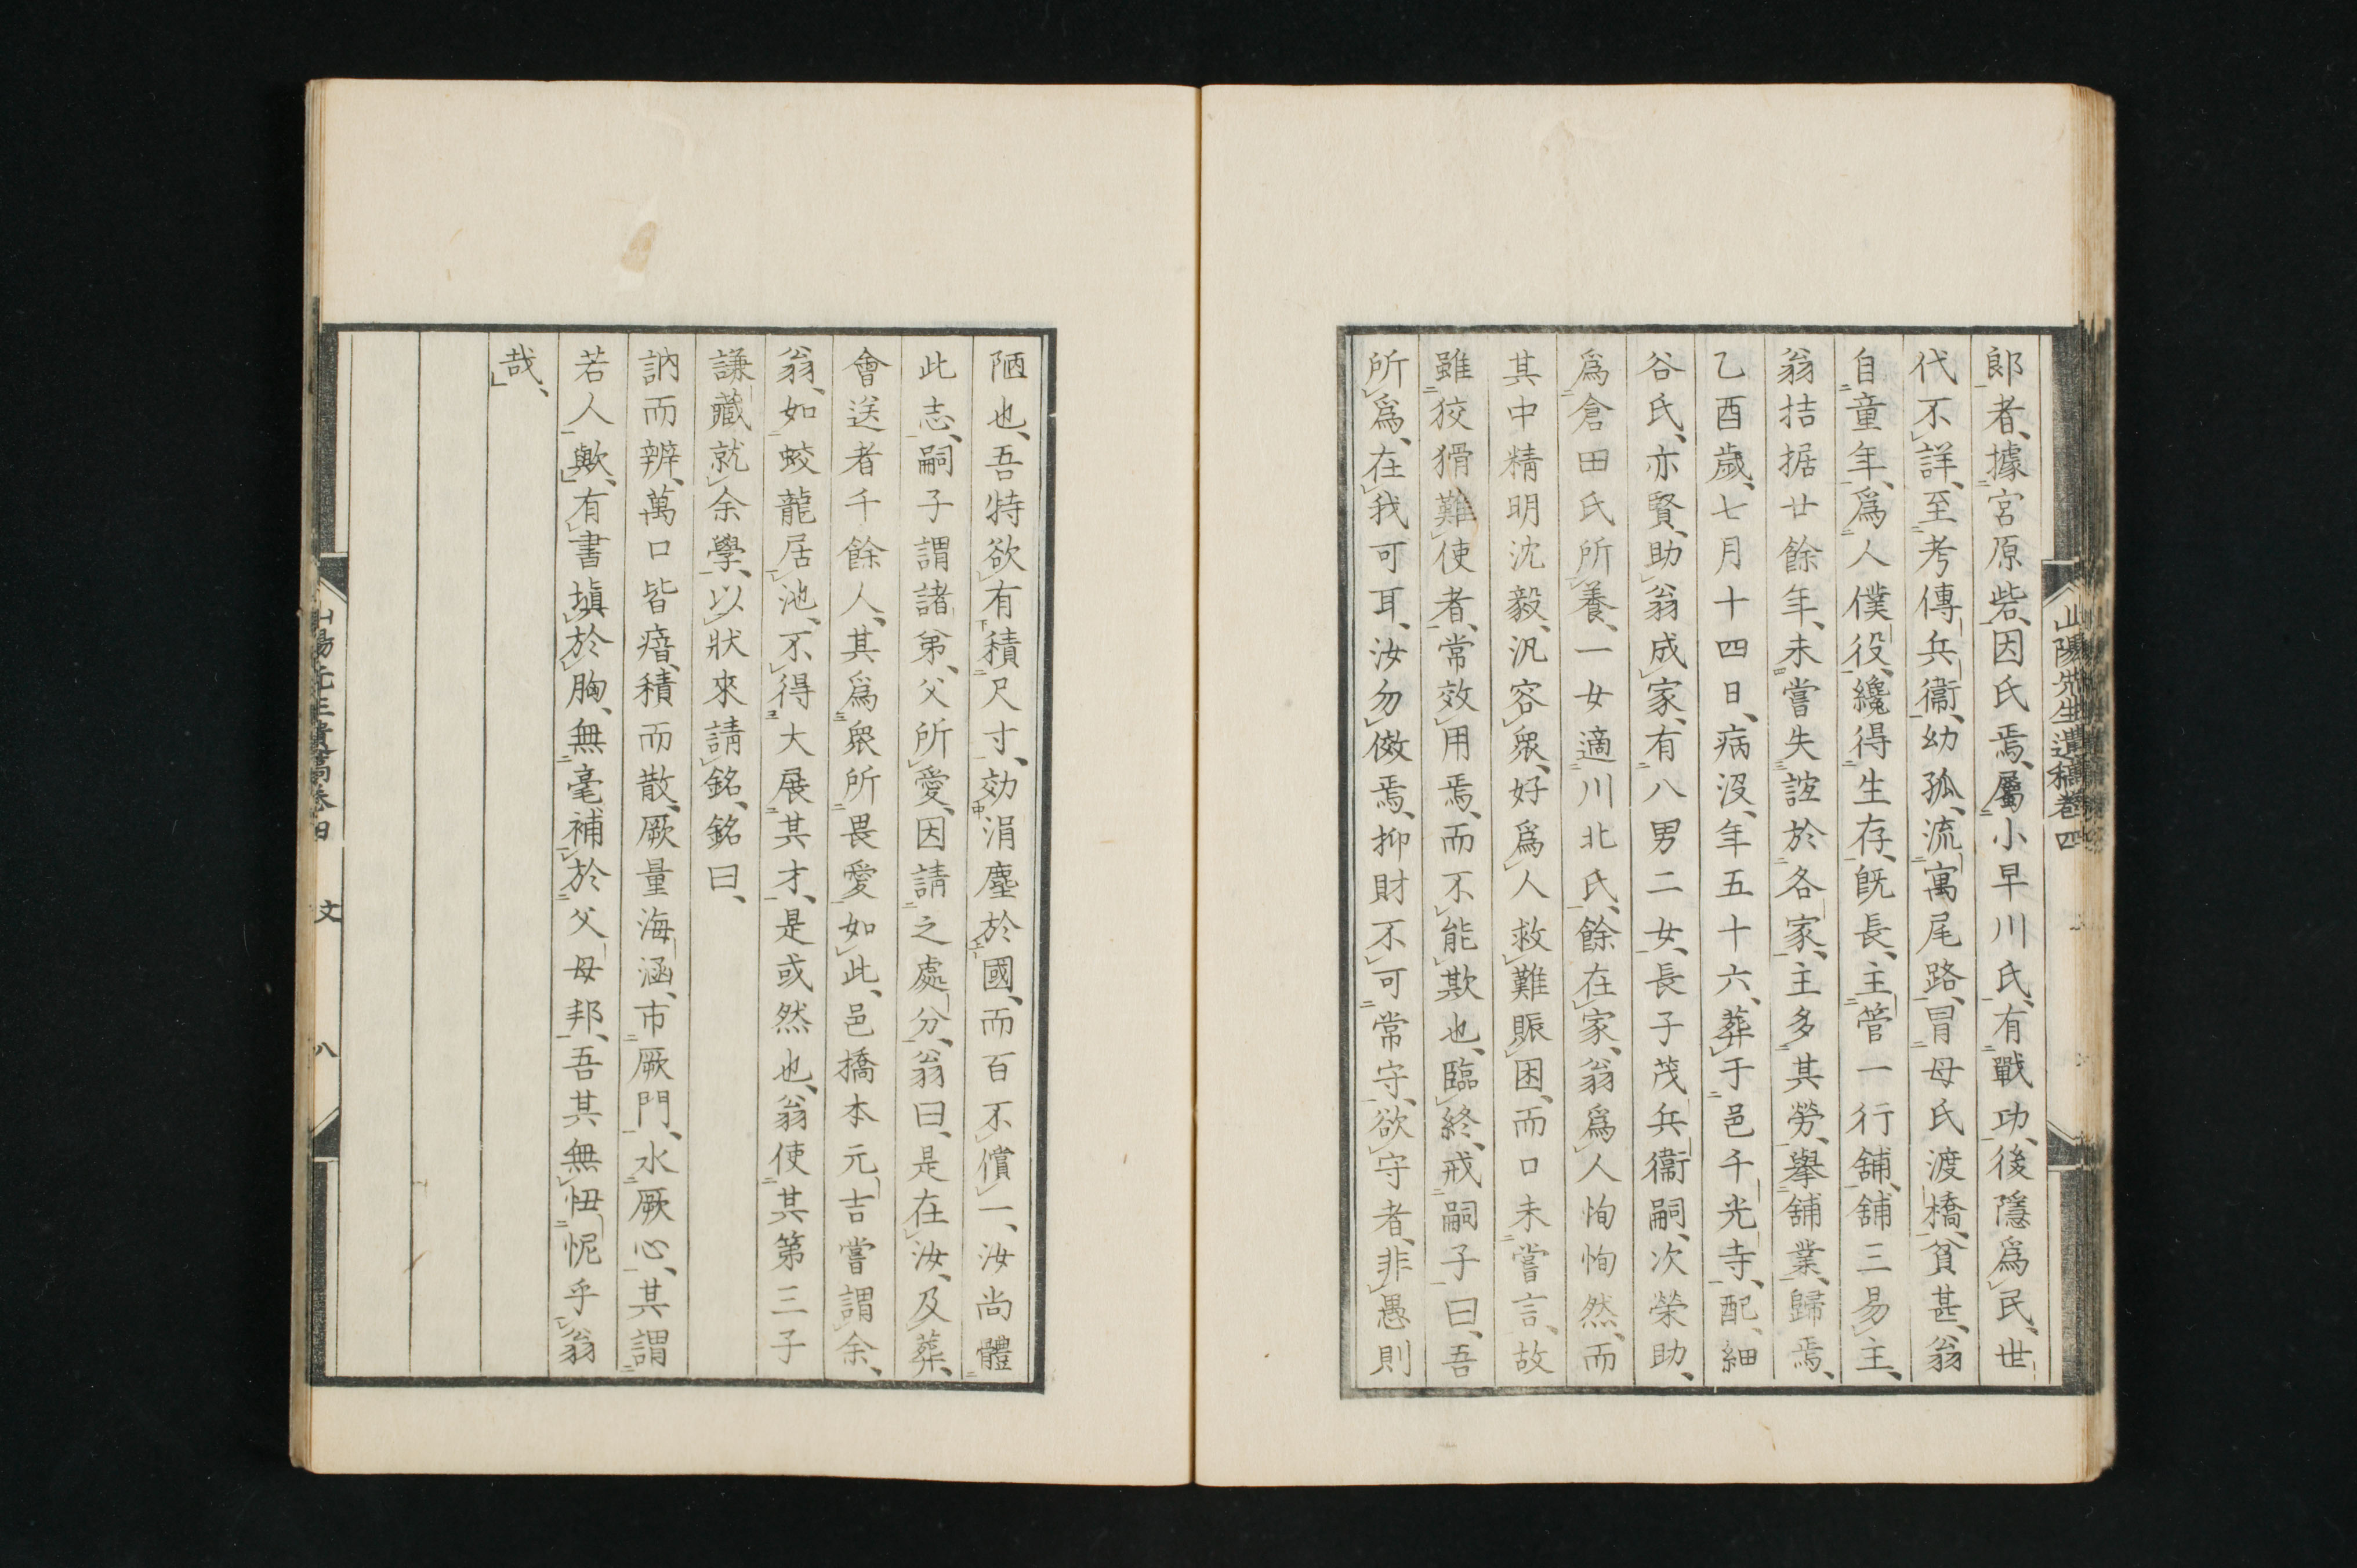 山陽先生遺稿卷四
郎者、據宮原砦、因氏焉、屬小早川氏、有戰功、後隱爲民、世
代不詳、至考傳兵衞、幼孤、流寓尾路、冒母氏渡橋、貧甚、翁
自童年、爲人僕役、纔得生存、既長、主管一行舖、舖三易主、
翁拮据廿餘年、未嘗失誼於各家、主多其勞、擧舖業、歸焉、
乙酉歲、七月十四日、病沒、年五十六、葬于邑千光寺、配、細
谷氏、亦賢、助翁成家、有八男二女、長子茂兵衞嗣、次榮助、
爲倉田氏所養、一女適川北氏、餘在家、翁爲人恂恂然、而
其中精明沈毅、汎容衆、好爲人救難賑困、而口未嘗言、故
雖狡猾難使者、常效用焉、而不能欺也、臨終、戒嗣子曰、吾
所爲、在我可耳、汝勿倣焉、抑財不可常守、欲守者、非愚則
陋也、吾特欲有積尺寸、効涓塵於國、而百不償一、汝尚體
此志、嗣子謂諸弟、父所愛、因請之處分、翁曰、是在汝、及葬、
會送者千餘人、其爲衆所畏愛如此、邑橋本元吉嘗謂余、
翁、如蛟龍居池、不得大展其才、是或然也、翁使其第三子
謙藏就余學、以狀來請銘、銘曰、
訥而辨、萬口皆瘖、積而散、厥量海涵、市厥門、水厥心、其謂
若人歟、有書塡於胸、無毫補於父母邦、吾其無忸怩乎翁
哉、
山陽先生遺稿卷四 文 八